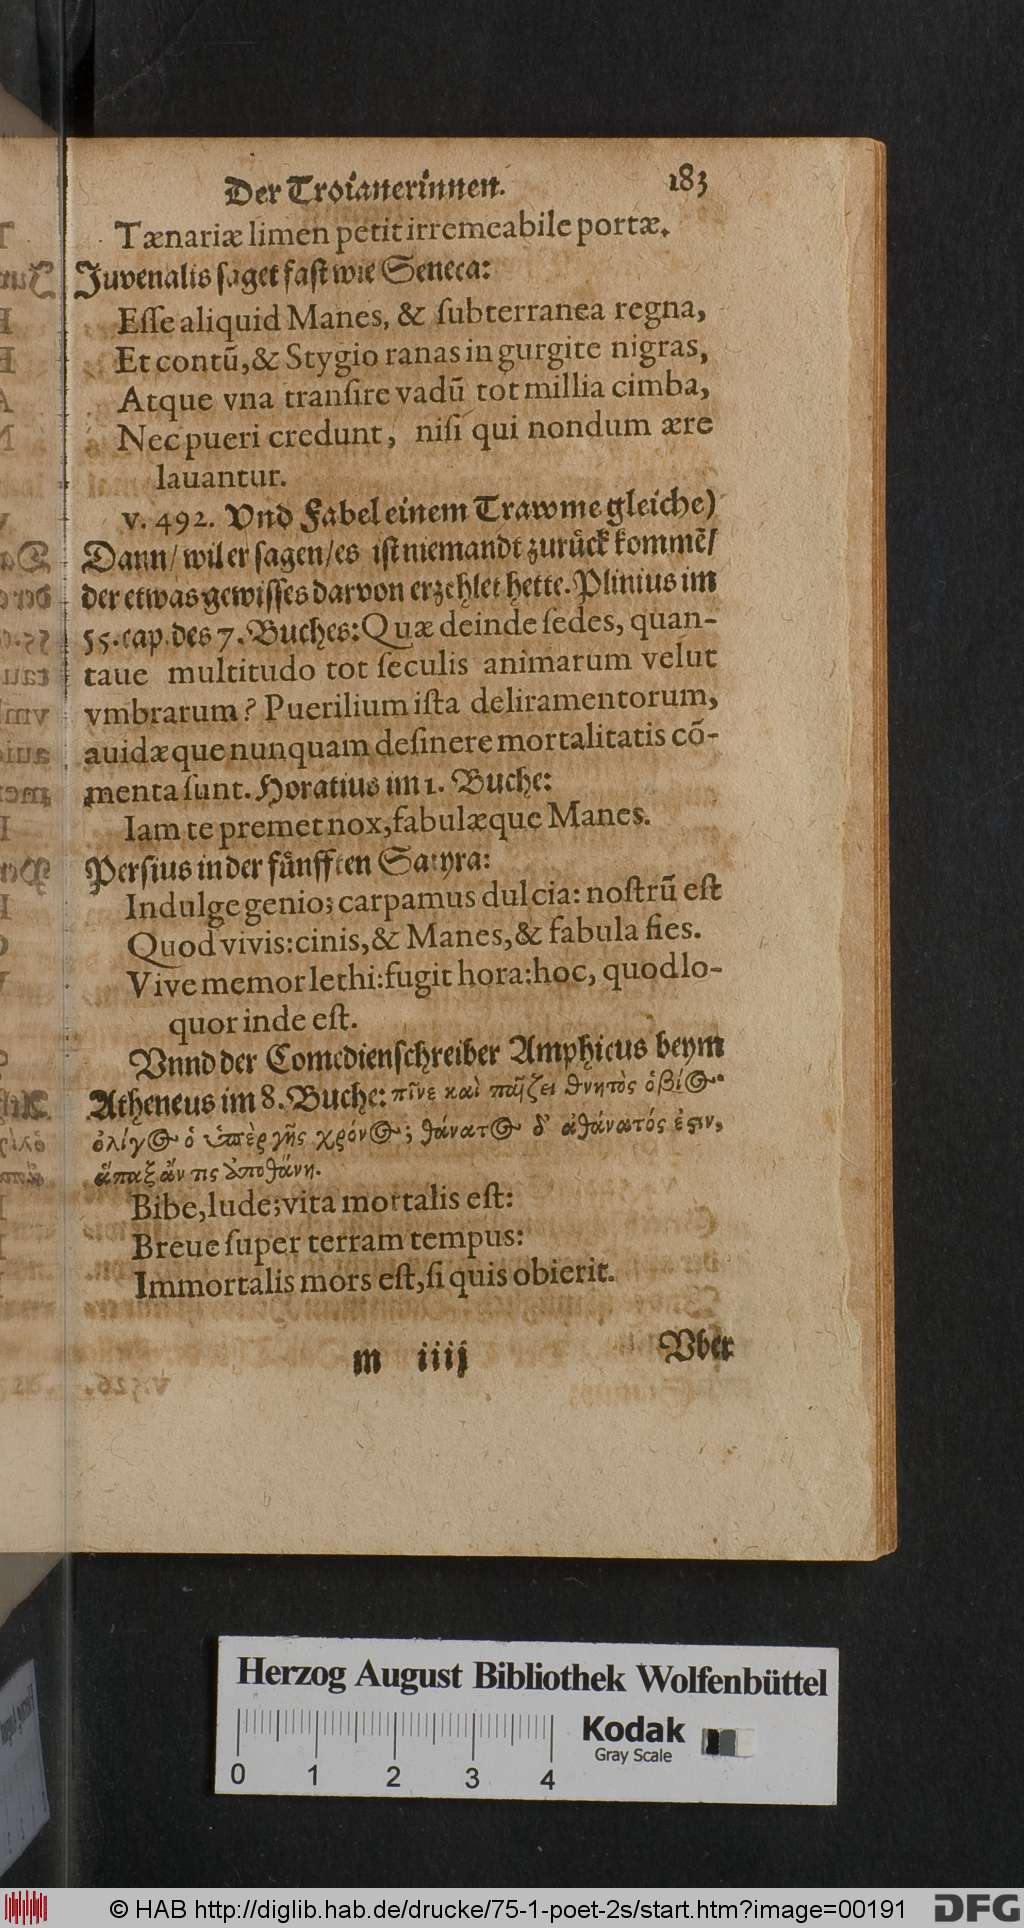 Der Troianerinnen. 183
Tænariæ limen petit irremeabile portæ.
Juvenalis saget fast wie Seneca:
Eſſe aliquid Manes, & ſubterranea regna,
Et contū, & Stygio ranas in gurgite nigras,
Atque vna tranſire vadū tot millia cimba,
Nec pueri credunt, niſi qui nondum ære
lauantur.
v. 492. Vnd Fabel einem Trawme gleiche)
Dann/ wil er sagen/ es ist niemandt zurück kommē/
der etwas gewisses darvon erzehlet hette. Plinius im
55. cap. des 7. Buches: Quæ deinde ſedes, quan-
taue multitudo tot ſeculis animarum velut
vmbrarum? Puerilium iſta deliramentorum,
auidæque nunquam deſinere mortalitatis cō-
menta ſunt. Horatius im 1. Buche:
Iam te premet nox, fabulæque Manes.
Persius in der fünfften Satyra:
Indulge genio; carpamus dulcia: noſtrū eſt
Quod vivis: cinis, & Manes, & fabula fies.
Vive memor lethi: fugit hora: hoc, quod lo-
quor inde eſt.
Vnnd der Comedienschreiber Amphicus beym
Atheneus im 8. Buche: πῖνε καὶ παῖζε· θνητὸς ὁ βίος·
ὀλίγος ὁ ὑπὲρ γῆς χρόνος; θάνατος δ' ἀθάνατός ἐστιν,
ἅπαξ ἄν τις ἀποθάνῃ.
Bibe, lude; vita mortalis eſt:
Breue ſuper terram tempus:
Immortalis mors eſt, ſi quis obierit.
m iiij Vber
Herzog August Bibliothek Wolfenbüttel
Kodak
Gray Scale
0 1 2 3 4
© HAB http://diglib.hab.de/drucke/75-1-poet-2s/start.htm?image=00191 DFG